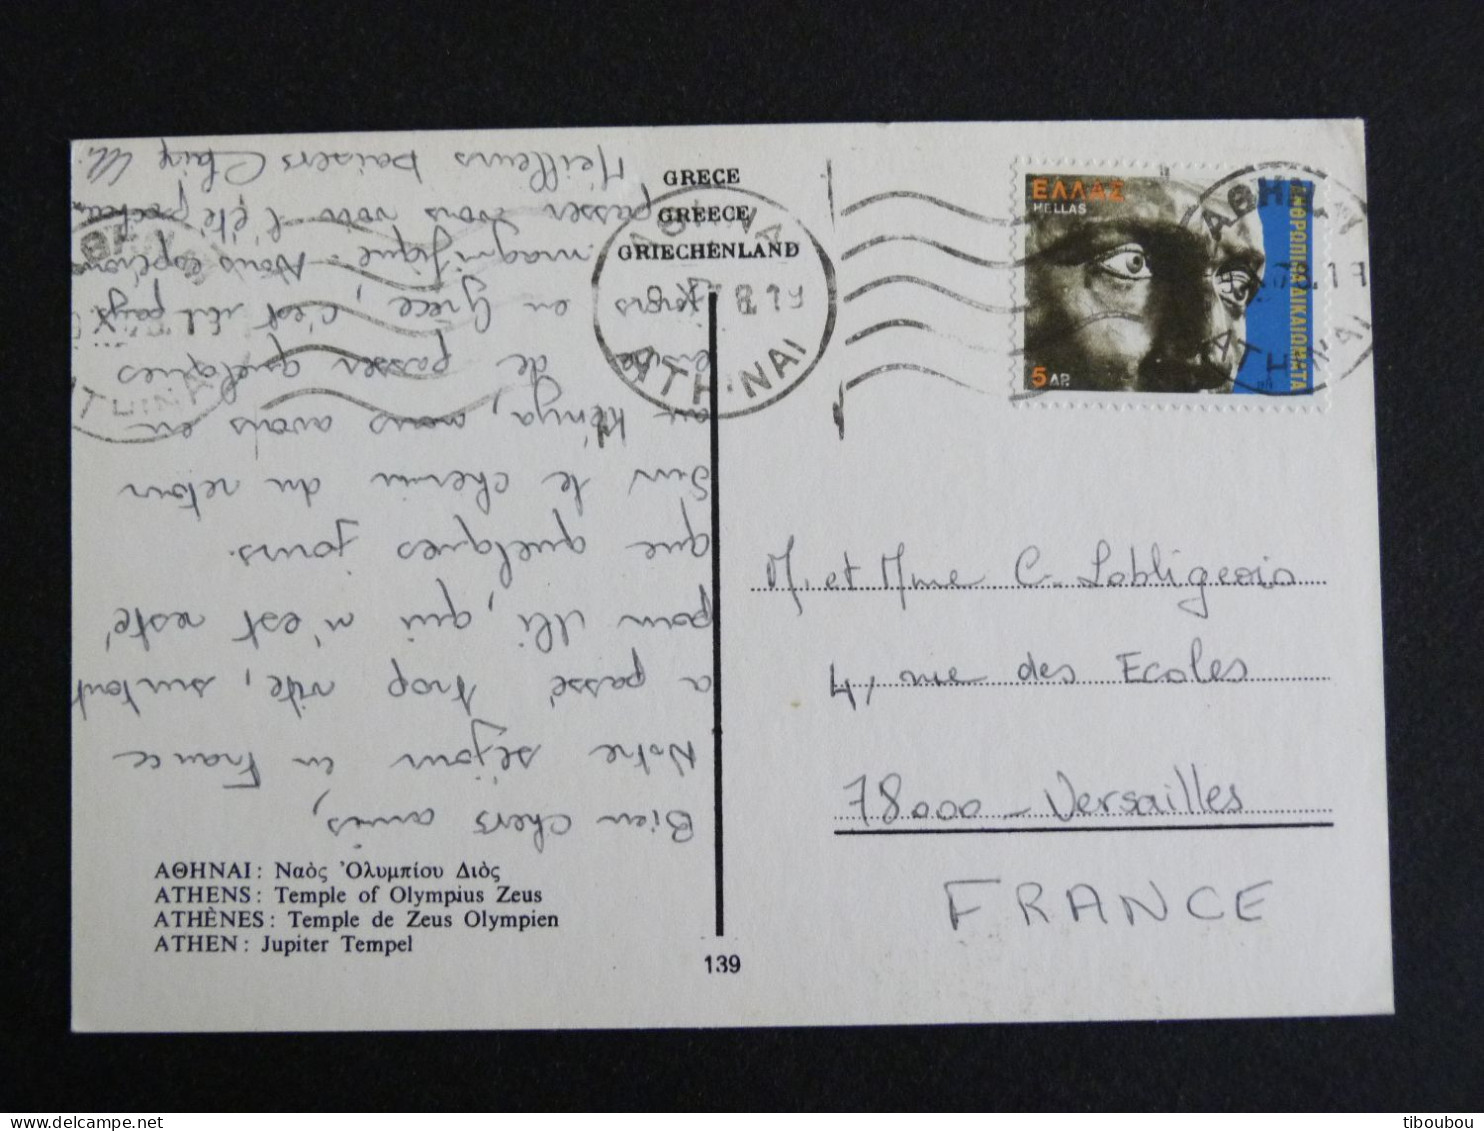 GRECE
GREECE
GRIECHENLAND
ΑΘΗΝΑ
ATHINAI
ΕΛΛΑΣ
HELLAS
5 ΔΡ.
ΑΝΘΡΩΠΙΝΑ ΔΙΚΑΙΩΜΑΤΑ
ATHINAI
Bien chers amis,
Notre séjour en France
a passé trop vite, surtout
pour Uli, qui n'est resté
que quelques jours.
Sur le chemin du retour
au Kénya, nous avons eu
de passer quelques
jours en Grèce, c'est un pays
magnifique. Nous espérons
passer vous voir l'été prochain
Meilleurs baisers
M. et Mme C. Lobligeois
4, rue des Ecoles
78000 - Versailles
FRANCE
ΑΘΗΝΑΙ: Ναὸς Ὀλυμπίου Διὸς
ATHENS: Temple of Olympius Zeus
ATHÈNES: Temple de Zeus Olympien
ATHEN: Jupiter Tempel
139
tiboubou